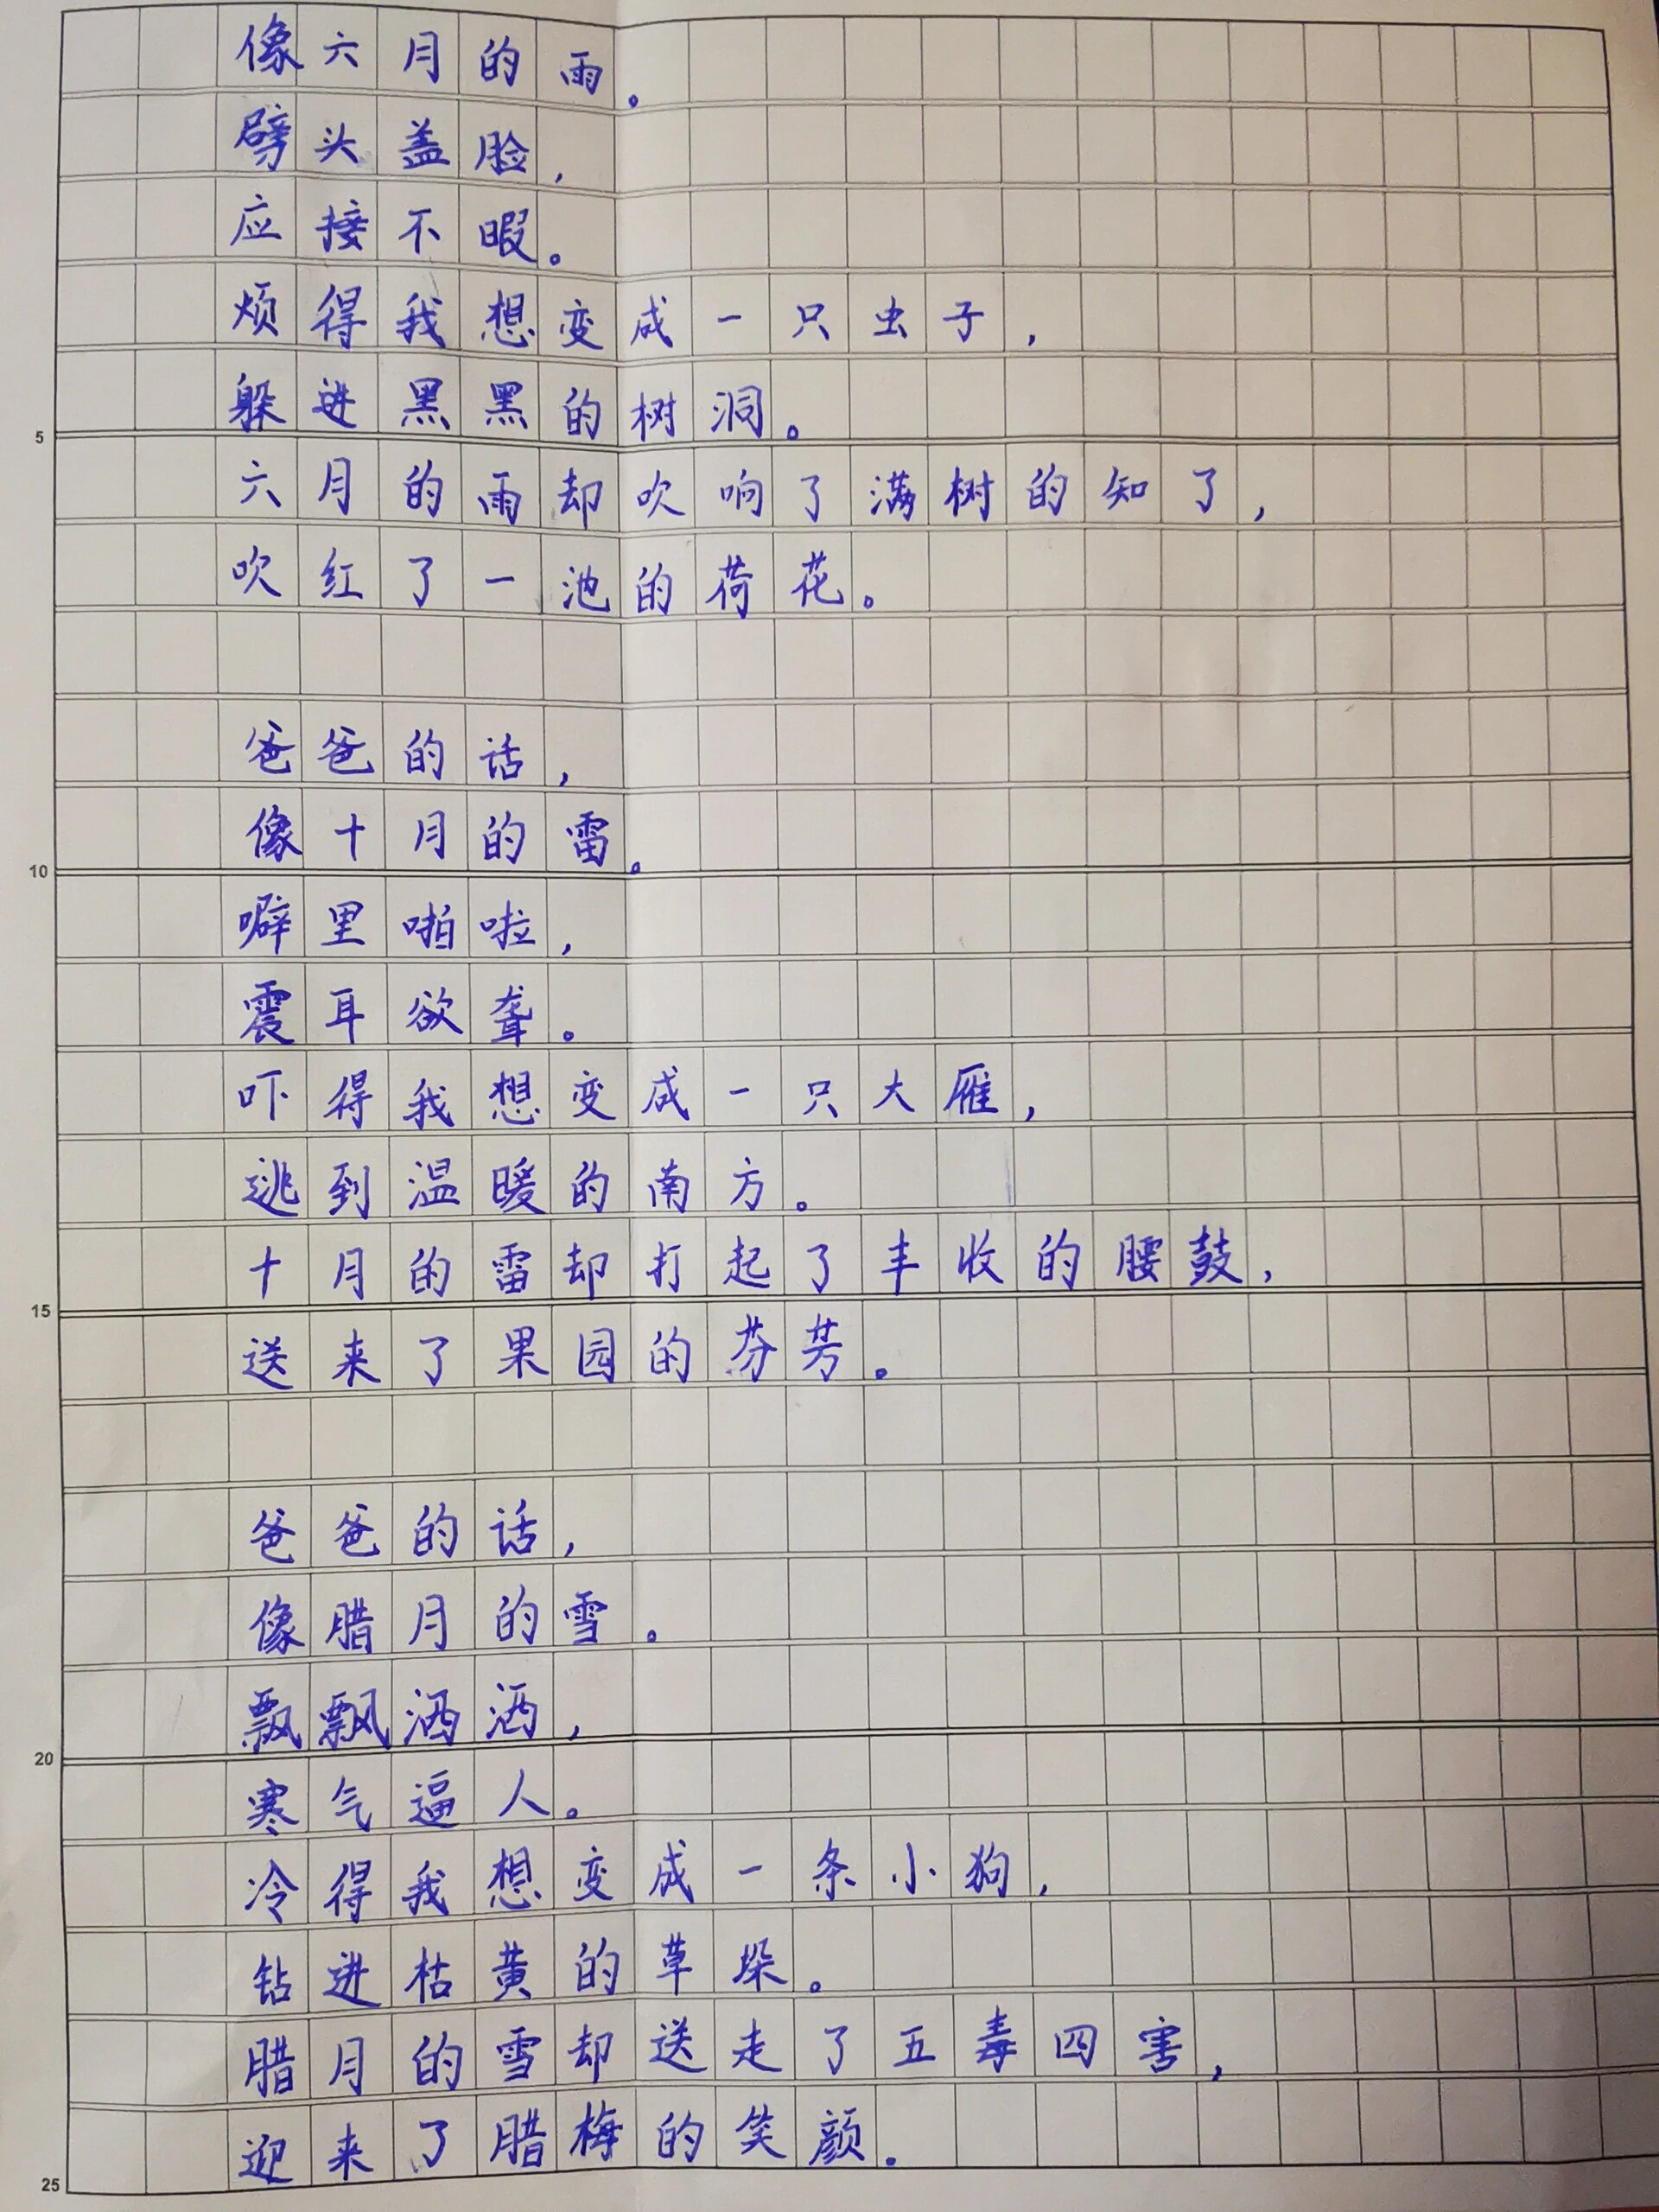 像六月的雨。
劈头盖脸，
应接不暇。
烦得我想变成一只虫子，
躲进黑黑的树洞。
5
六月的雨却吹响了满树的知了，
吹红了一池的荷花。
爸爸的话，
像十月的雷。
10
噼里啪啦，
震耳欲聋。
吓得我想变成一只大雁，
逃到温暖的南方。
十月的雷却打起了丰收的腰鼓，
15
送来了果园的芬芳。
爸爸的话，
像腊月的雪。
飘飘洒洒，
20
寒气逼人。
冷得我想变成一条小狗，
钻进枯黄的草垛。
腊月的雪却送走了五毒四害，
迎来了腊梅的笑颜。
25